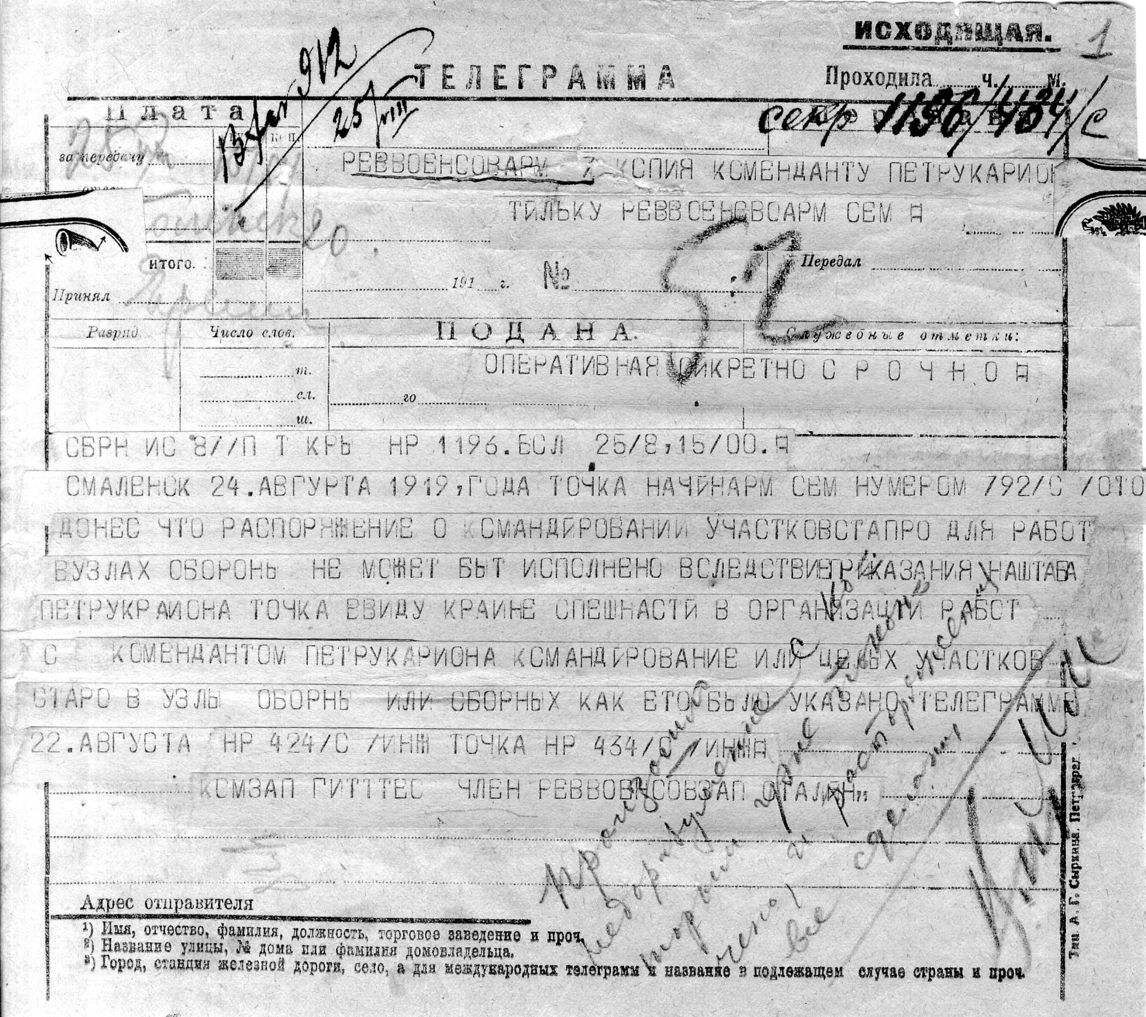 ИСХОДЯЩАЯ.
1
ТЕЛЕГРАММА
Проходила ч. м.
912
25/VIII
Плата
секр 1196/434/с
за передачу
коп.
РЕВВОЕНСОВАРМ 7 КОПИЯ КОМЕНДАНТУ ПЕТРУКАРИОН
ТИЛЬКУ РЕВВОЕНСВОАРМ СЕМ Я
52
итого.
Передал
191 г. №
Принял
Разряд.
Число слов.
ПОДАНА.
Служебные отметки:
ОПЕРАТИВНАЯ СИКРЕТНО СРОЧНО Я
т.
сл.
го
ш.
СБРН ИС 87/П Т КРЬ НР 1196.БСЛ 25/8,15/00.Я
СМАЛЕНСК 24.АВГУРТА 1919,ГОДА ТОЧКА НАЧИНАРМ СЕМ НУМЕРОМ /792/С /ОТО
ДОНЕС ЧТО РАСПОРЯЖЕНИЕ О КОМАНДИРОВАНИИ УЧАСТКОВСТАПРО ДЛЯ РАБОТ
ВУЗЛАХ ОБОРОНЬ НЕ МОЖЕТ БЫТ ИСПОЛНЕНО ВСЛЕДСТВИЕ ПРИКАЗАНИЯ НАШТАБА
ПЕТРУКРАИОНА ТОЧКА ЕВИДУ КРАИНЕ СПЕШНАСТИ В ОРГАНИЗАЦИИ РАБОТ
С КОМЕНДАНТОМ ПЕТРУКАРИОНА КОМАНДИРОВАНИЕ ИЛИ ЦЕЛЫХ УЧАСТКОВ
СТАРО В УЗЛЫ ОБОРНЫ ИЛИ СБОРНЫХ КАК ЕТО БЫЛО УКАЗАНО ТЕЛЕГРАММЕ
22.АВГУСТА НР 424/С /ИНЖ ТОЧКА НР 434/С /ИНЖЯ
КОМЗАП ГИТТТЕС ЧЛЕН РЕВВОЕНСОВЗАП СТАЛИН,,
произошло
недоразумение с ко
торым
и распоряжения
все сделаны,
Адрес отправителя
¹) Имя, отчество, фамилия, должность, торговое заведение и проч.
²) Название улицы, № дома или фамилия домовладельца.
³) Город, станция железной дороги, село, а для международных телеграмм и название в подлежащем случае страны и проч.
Тип. А. Г. Сыркина. Петроград.